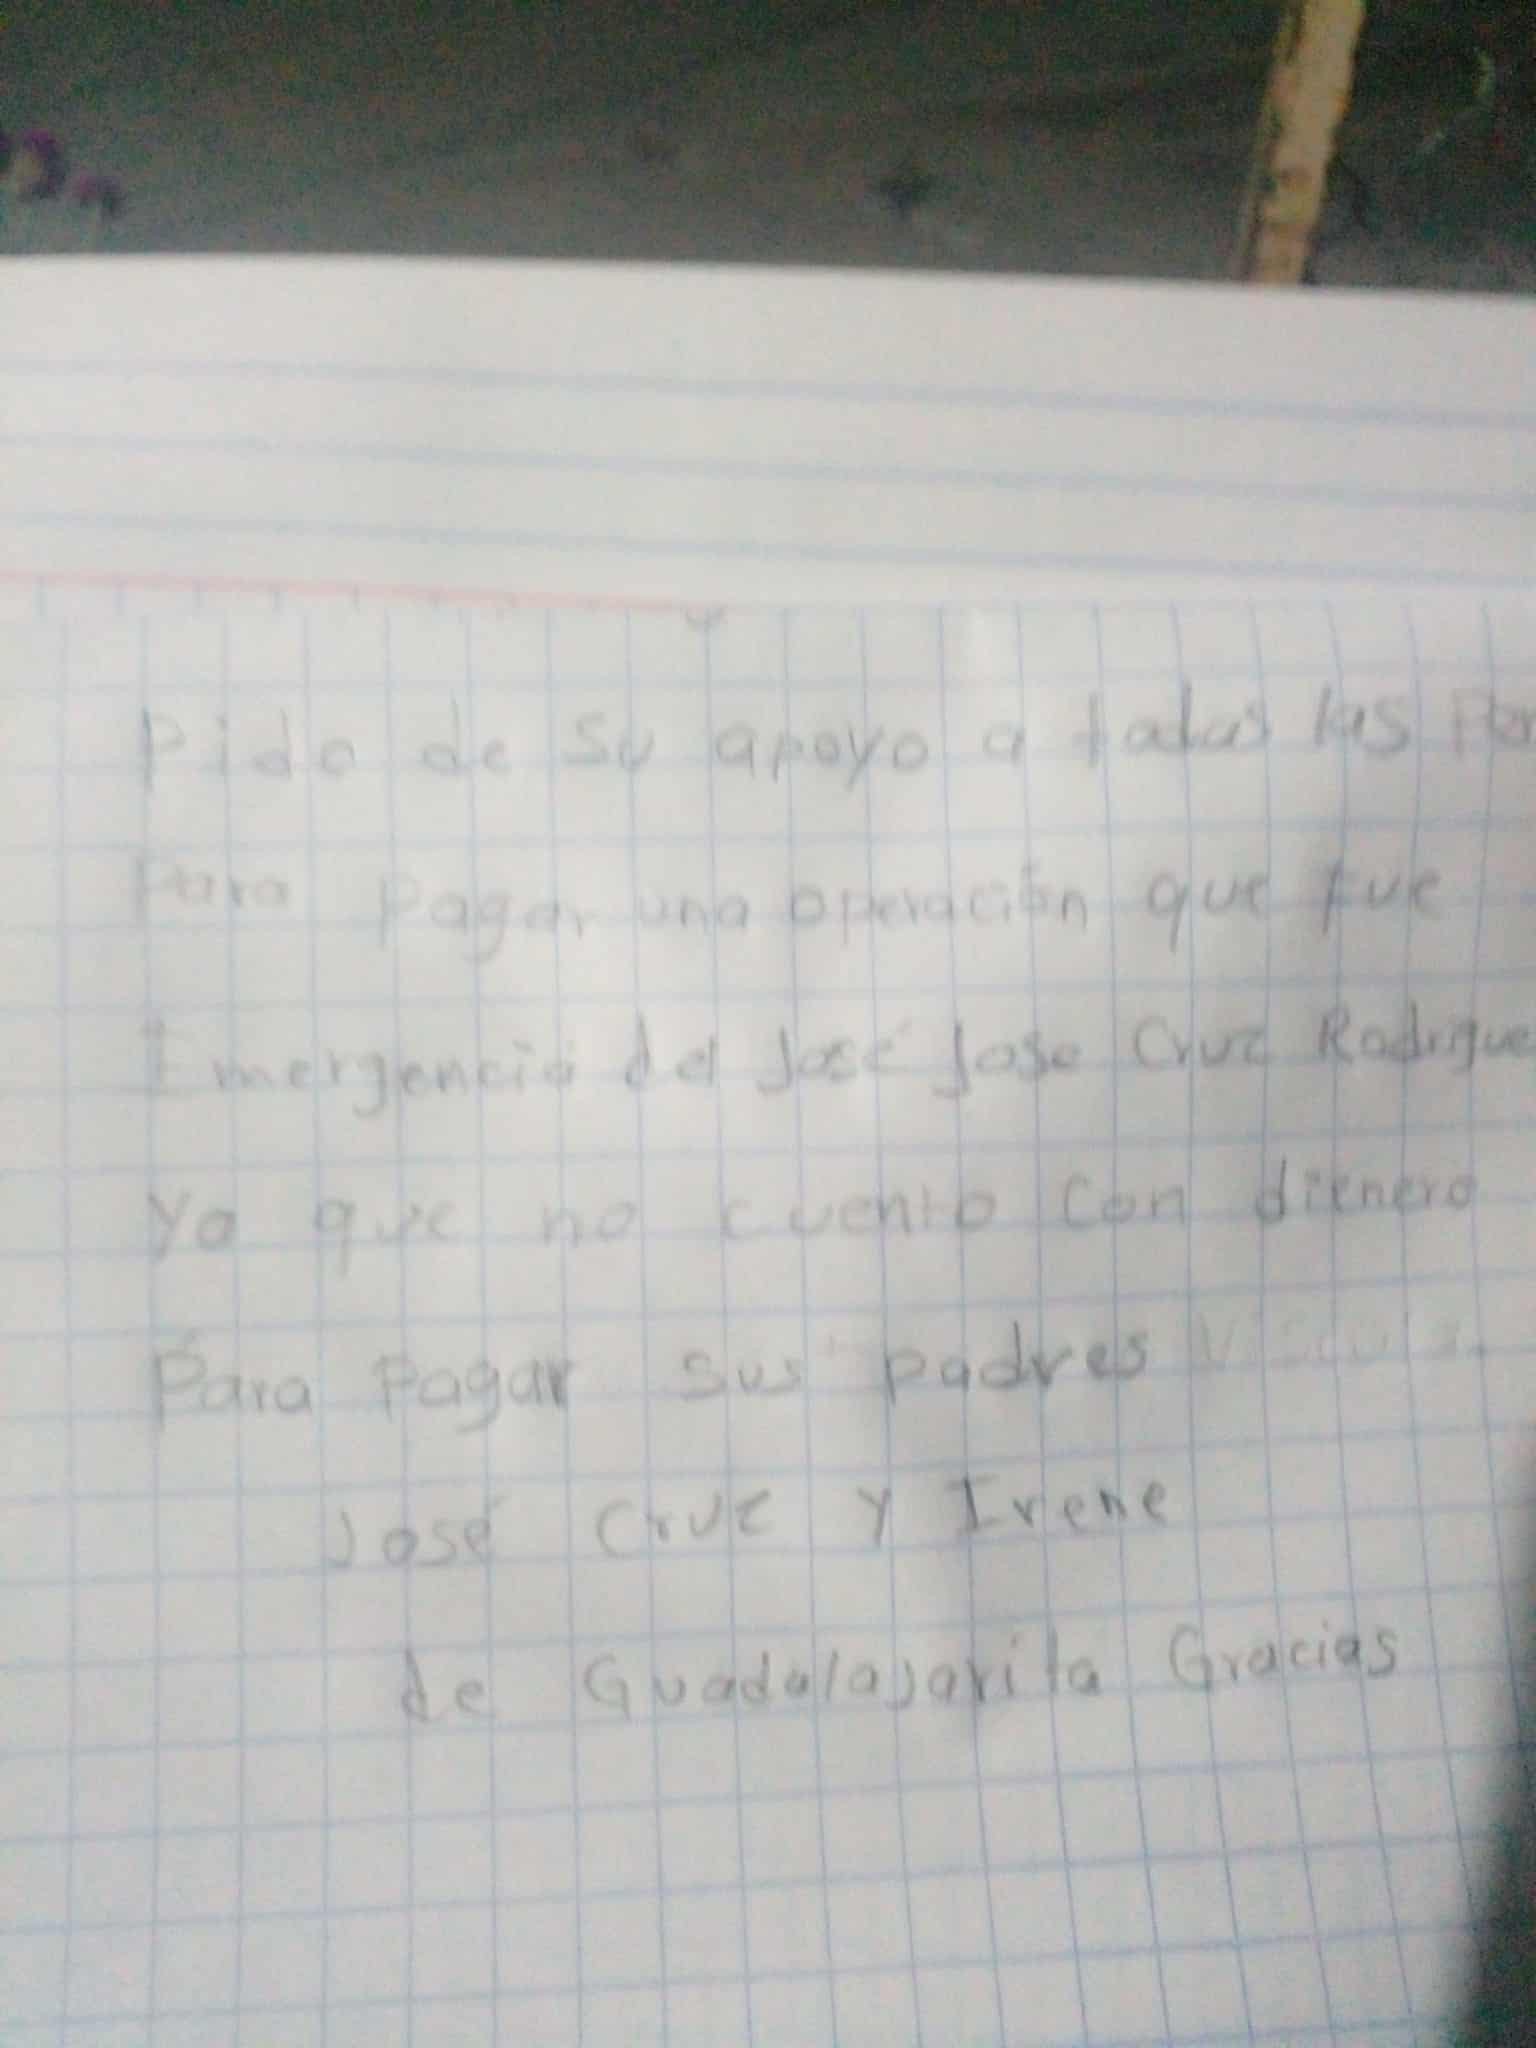 Pido de su apoyo a todas las Per
Para pagar una operación que fue
Emergencia del José Jose Cruz Rodrigue
Ya que no cuento con dienero
Para Pagar sus padres
José Cruz y Irene
de Guadalajarita Gracias